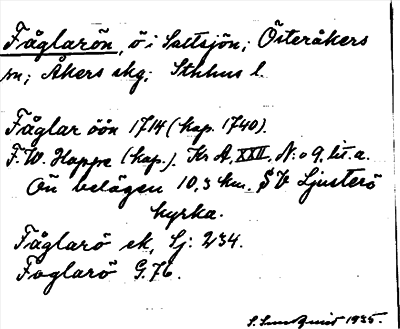 Fåglarön, ö i Saltsjön; Österåkers
sn; Åkers skg; Sthlms l.
Fåglar öön 1714 (kop. 1740).
F. W. Hoppe (kop.). Kr A, XXII, N:o 9, lit. a.
Ön belägen 10,3 km. SV Ljusterö
kyrka.
Fåglarö ek, Lj: 234.
Foglarö G. 76.
S. Sundquist 1935.